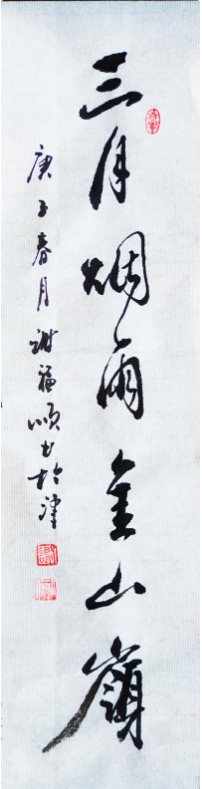 三月烟雨金山嶺
庚子春月谢福顺书於津